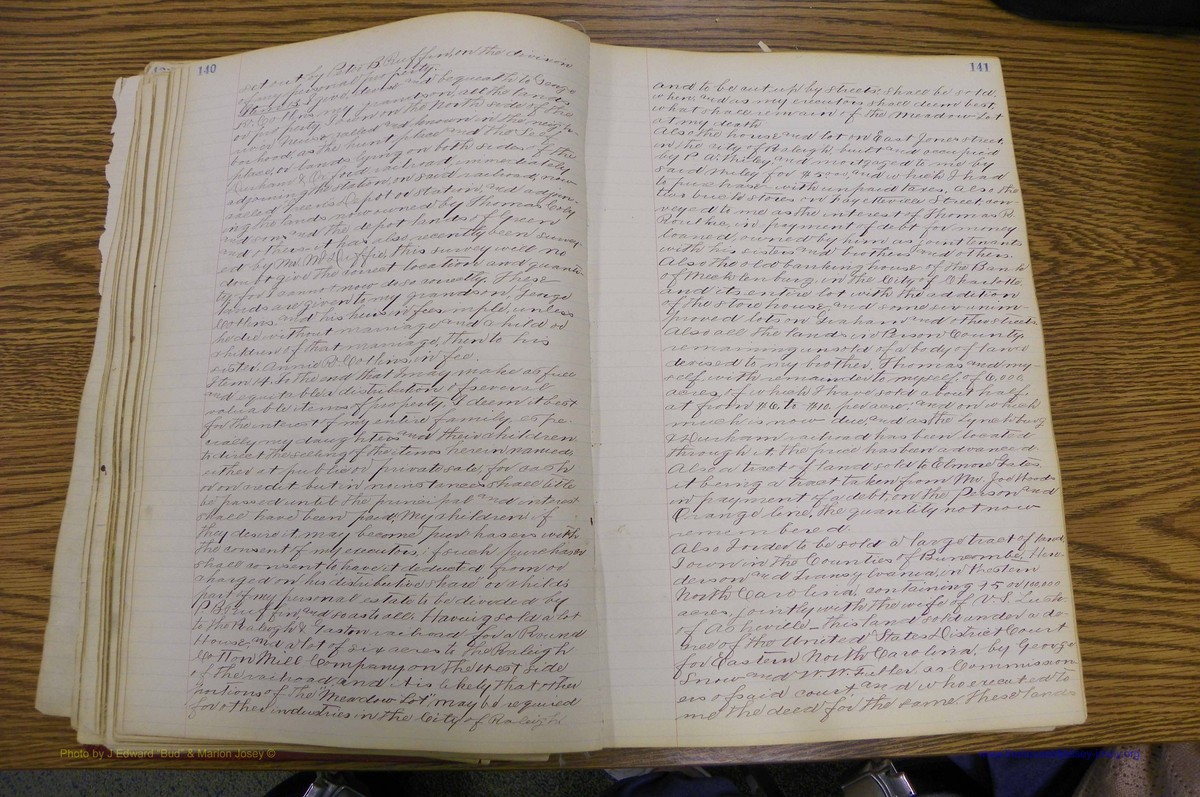 140
set out by Peter B Ruffin, on the division
of my personal property.
Item 13. I give devise and bequeath to George
P. Collins my grandson, all the lands
or property I own on the North side of Eno
river Quin called and known in the neigh-
borhood, as the Hunt place and the Self
place, or lands lying on both sides of the
Durham & Oxford railroad, immediately
adjoining the station, on said railroad, now
called Depot or station, and adjoin-
ing the lands now owned by Thomas Coly
and sons, and the depot lands of Green
and others, it has also recently been survey-
ed by Mr. McDuffie, this survey will no
doubt give the correct location and quanti-
ty for I cannot now do so correctly. These
lands are given to my grandson, George
Collins, and his heirs in fee simple, unless
he die without marriage and a child or
children of that marriage, then to his
sister Annie R. Collins, in fee.
Item 14. To the end that I may make as full
and equitable a distribution of several
valuable items of property, I deem it best
for the interest of my entire family, espe-
cially my daughters and their children
to direct the selling of the items herein named,
either at public or private sale, for cash
or on credit, but in no instance shall title
be passed until the principal and interest
shall have been paid. My children, if
they desire it may become purchasers with
the consent of my executors, if such purchaser
shall consent to have it deducted from or
charged on his distributive share in a childs
part of my personal estate to be divided by
P B Ruffin and Having sold a lot
to the Raleigh & Gaston railroad for a Round
House, and a lot of six acres to the Raleigh
Cotton Mill Company, on the west side
of the railroad, and it is likely that other
portions of the "Meadow Lot" may be required
for other industries in the City of Raleigh
141
and to be cut up by streets, shall be sold
when, and as my executors shall deem best,
what shall remain of the Meadow Lot
at my death.
Also the house and lot on East Jones street,
in the city of Raleigh, built and occupied
by P. A. Wiley, and mortgaged to me by
said Wiley for and which I had
to purchase with unpaid taxes. Also the
two brick stores on Fayetteville Street, con-
veyed to me as the interest of Thomas R.
in payment of debt for money
loaned, owned by him as joint tenants
with his sisters and brothers and others.
Also the old banking house of the Bank
of Mecklenburg, in the City of Charlotte,
and its entire lot with the addition
of the store house, and some six unim-
proved lots on Graham and other streets.
Also all the lands in Person County
remaining unsold of a body of land
devised to my brother, Thomas and my-
self, with remainder to myself of 6,000
acres, of which I have sold about half,
at from $6. to $10. per acre, and on which
much is now due, and as the Lynchburg
& Durham railroad has been located
through it the price has been advanced.
Also a tract of land sold to Elmore Gates,
it being a tract taken from Mr. Joe Woods
in payment of a debt, on the Person and
Orange line, the quantity not now
remembered.
Also I order to be sold a large tract of land,
I own in the Counties of Buncombe, Hen-
derson and Transylvania, in Western
North Carolina, containing or 10,000
acres, jointly with the wife of V. S. Lusk
of Asheville - this land sold under a de-
cree of the United States District Court
for Eastern North Carolina, by George
Snow and W. W. Fuller, as Commission-
ers of said court, and who executed to
me the deed for the same. These lands
Photo by J Edward "Bud" & Marion Josey ©